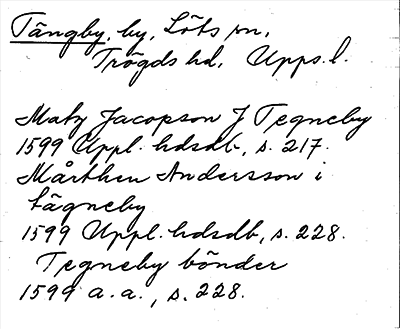 Tängby, by, Löts sn,
Trögds hd, Upps. l.
Matz Jacopson J Tegneby
1599 Uppl. hdsdb, s. 217.
Mårthen Andersson i
tägneby
1599 Uppl. hdsdb, s. 228.
Tegneby bönder
1599 a. a., s. 228.